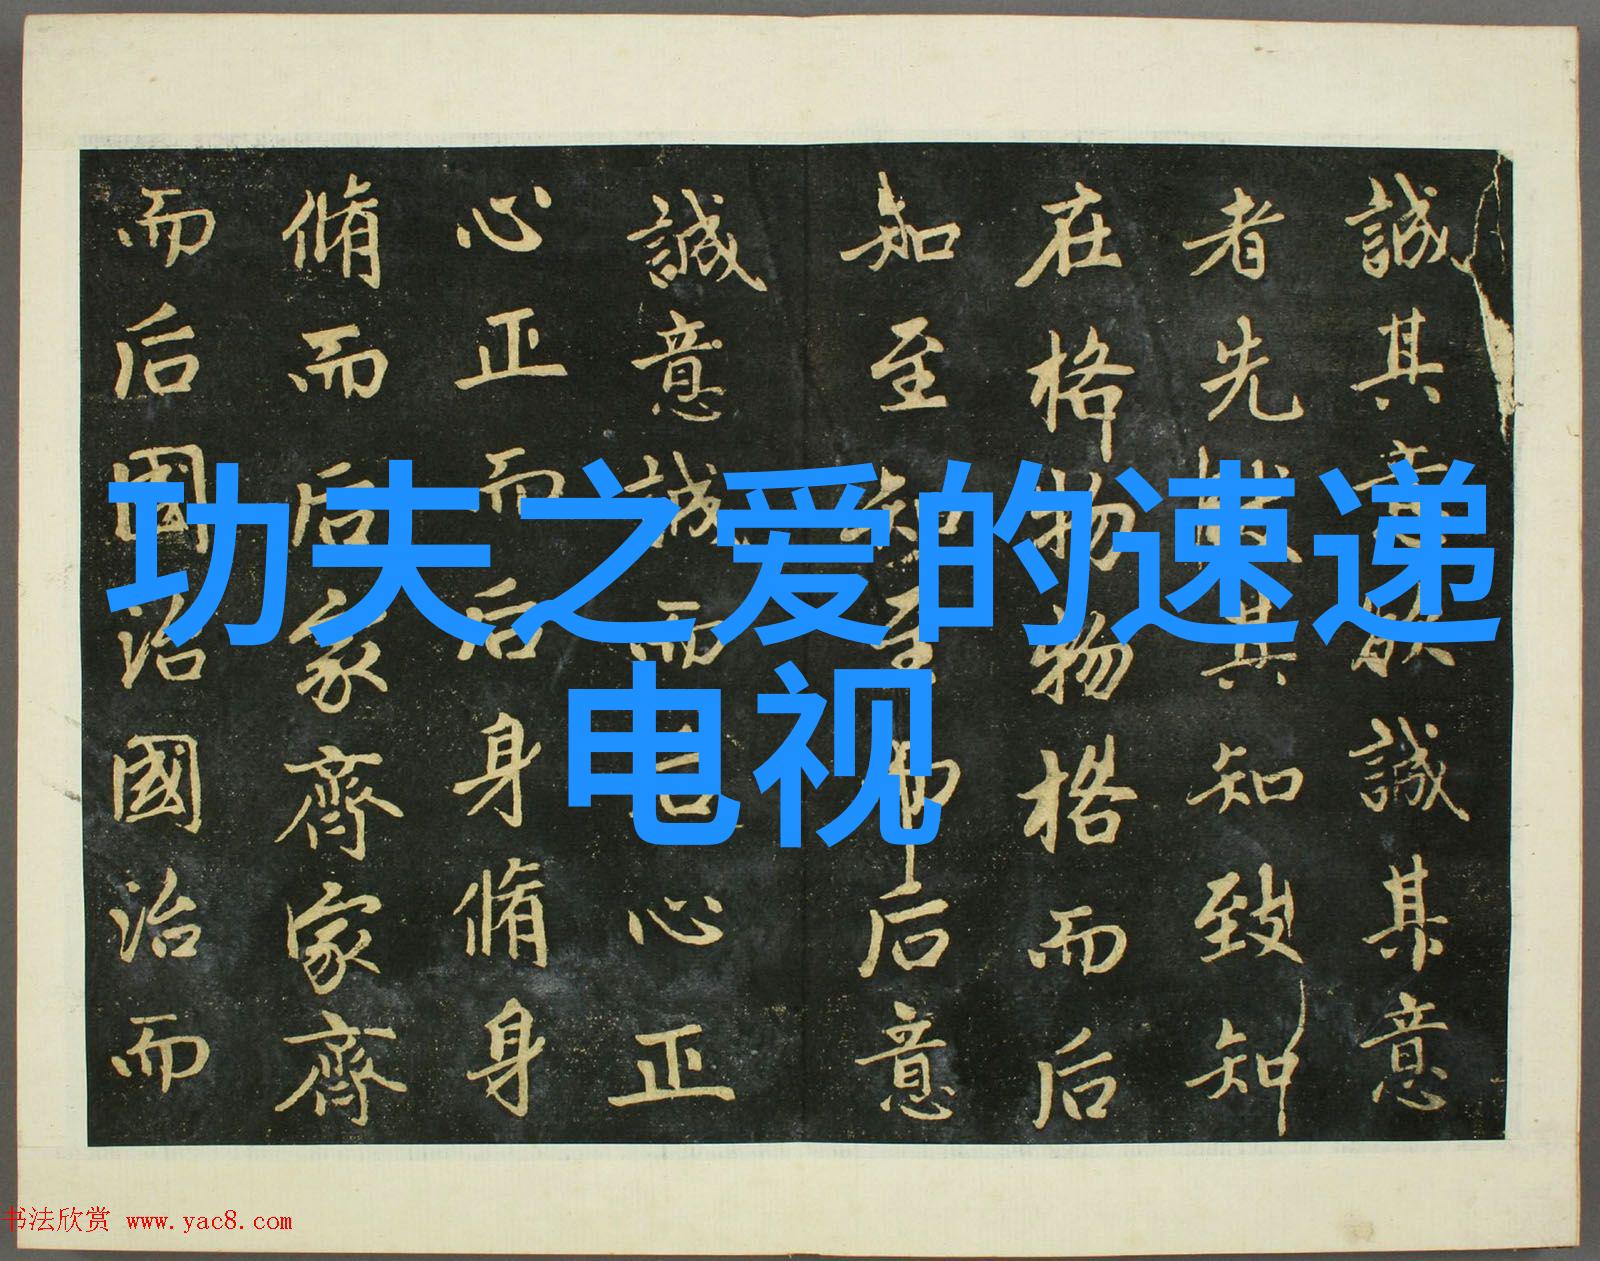 功夫之爱的速递
电视
誠其意欲誠其意
者先致其知致知
在格物物格而后
知至知至而后意
誠意誠而后心正
心正而后身脩身
脩而后家齊家齊
而后國治國治而
书法欣赏 www.yac8.com